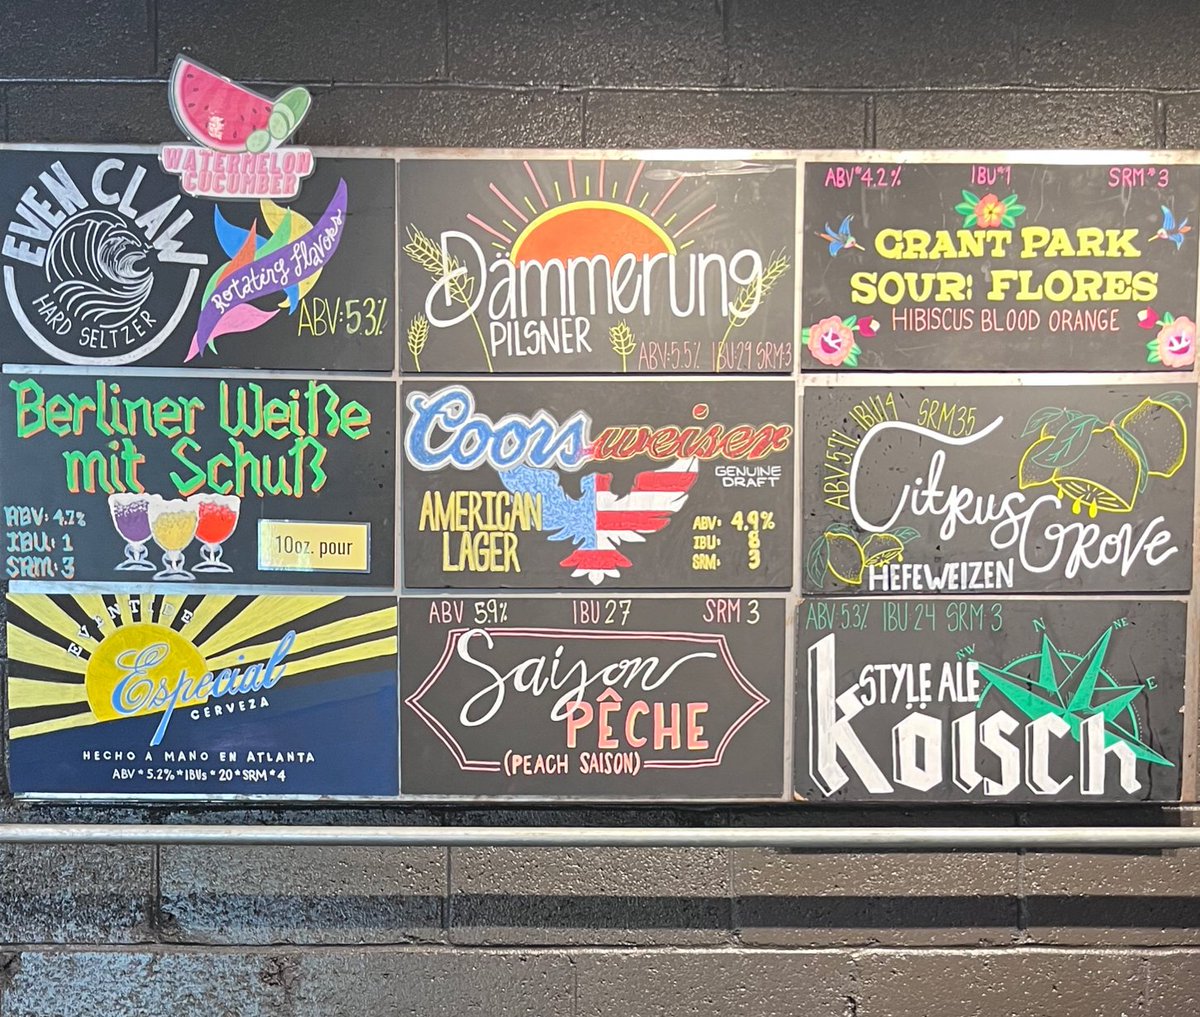 WATERMELON
CUCUMBER
EVEN CLAW
HARD SELTZER
Rotating Flavors
ABV: 5.3%
Dämmerung
PILSNER
ABV: 5.5% IBU: 29 SRM: 3
ABV*4.2% IBU*1 SRM*3
GRANT PARK
SOUR: FLORES
HIBISCUS BLOOD ORANGE
Berliner Weiße
mit Schuß
ABV: 4.7%
IBU: 1
SRM: 3
10oz. pour
Coorsweiser
GENUINE
DRAFT
AMERICAN
LAGER
ABV: 4.9%
IBU: 8
SRM: 3
ABV 5.7% IBU 14 SRM 3.5
Citrus
Grove
HEFEWEIZEN
EVENTIDE
Especial
CERVEZA
HECHO A MANO EN ATLANTA
ABV * 5.2% * IBUs * 20 * SRM * 4
ABV 5.9% IBU 27 SRM 3
Saison
PÊCHE
(PEACH SAISON)
ABV 5.3% IBU 24 SRM 3
STYLE ALE
Kölsch
NW N NE E